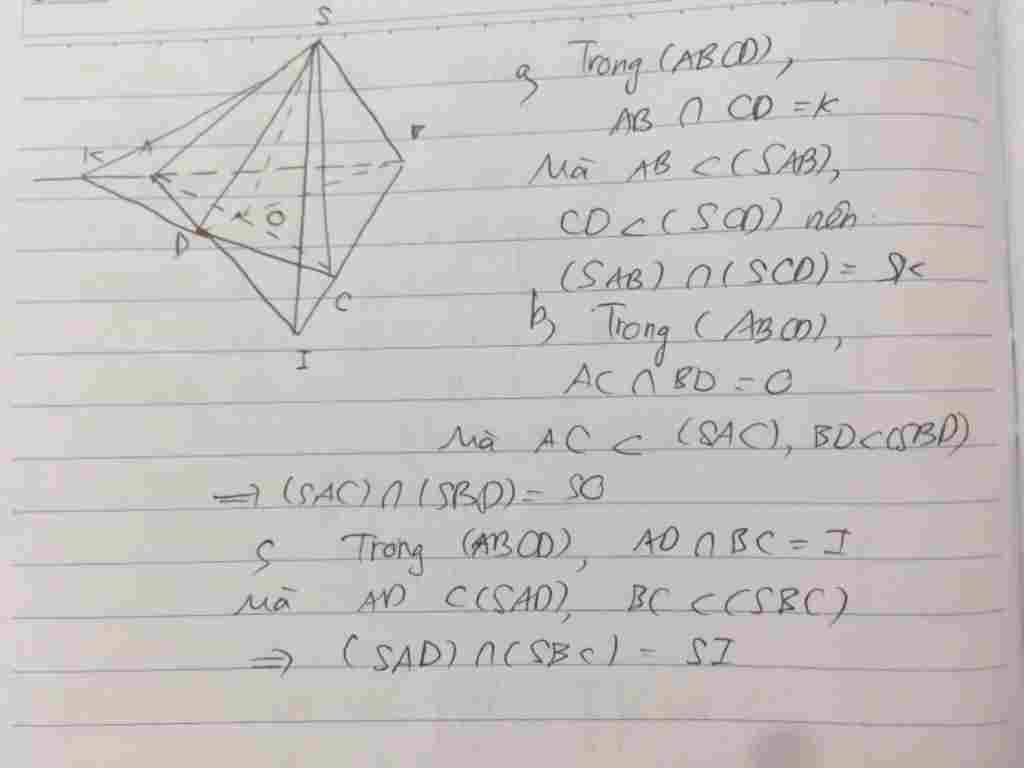 S
K
A
B
O
D
C
I
a, Trong (ABCD),
AB ∩ CD = K
Mà AB ⊂ (SAB),
CD ⊂ (SCD) nên
(SAB) ∩ (SCD) = SK
b, Trong (ABCD),
AC ∩ BD = O
Mà AC ⊂ (SAC), BD ⊂ (SBD)
⇒ (SAC) ∩ (SBD) = SO
c, Trong (ABCD), AD ∩ BC = I
Mà AD ⊂ (SAD), BC ⊂ (SBC)
⇒ (SAD) ∩ (SBC) = SI